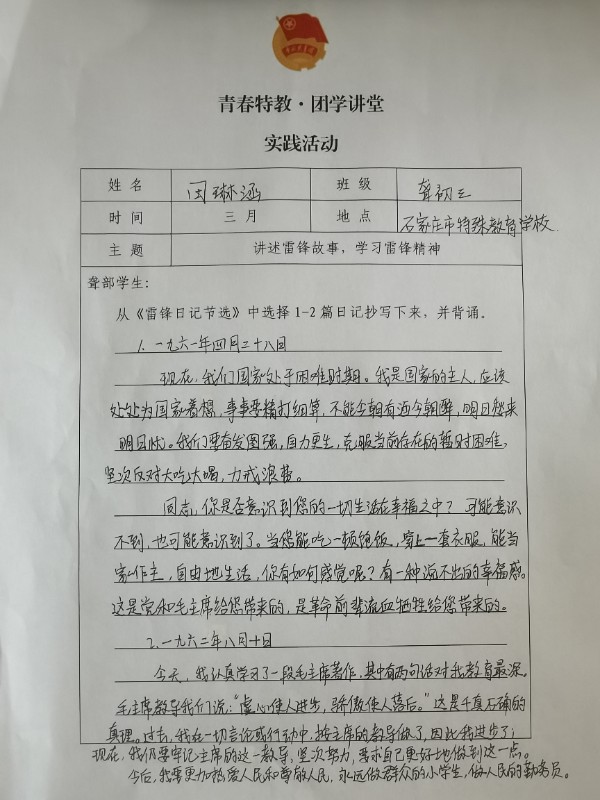 青春特教·团学讲堂
实践活动
姓名 闵琳涵 班级 聋初三
时间 三月 地点 石家庄市特殊教育学校
主题 讲述雷锋故事，学习雷锋精神
聋部学生：
从《雷锋日记节选》中选择1-2篇日记抄写下来，并背诵。
1.一九六一年四月二十八日
现在，我们国家处于困难时期。我是国家的主人，应该
处处为国家着想，事事要精打细算，不能今朝有酒今朝醉，明日愁来
明日忧。我们要奋发图强，自力更生，克服当前存在的暂时困难，
坚决反对大吃大喝，力戒浪费。
同志，你是否意识到您的一切生活在幸福之中？可能意识
不到，也可能意识到了。当您能吃一顿饱饭，穿上一套衣服，能当
家作主，自由地生活，你有如何感觉呢？有一种说不出的幸福感。
这是党和毛主席给您带来的，是革命前辈流血牺牲给您带来的。
2.一九六二年八月十日
今天，我认真学习了一段毛主席著作，其中有两句话对我教育最深。
毛主席教导我们说：“虚心使人进步，骄傲使人落后。”这是千真万确的
真理。过去，我在一切言论或行动中，按主席的教导做了，因此我进步了；
现在，我仍要牢记主席的这一教导，坚决努力，要求自己更好地做到这一点。
今后，我要更加热爱人民和尊敬人民，永远做群众的小学生，做人民的勤务员。